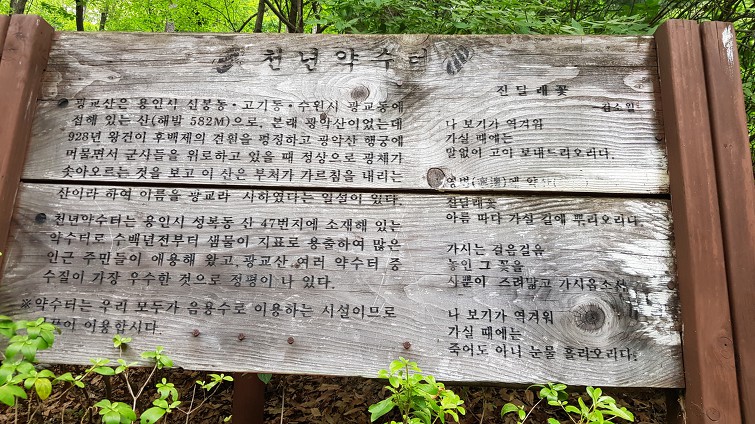 천년약수터
광교산은 용인시 신봉동·고기동·수원시 광교동에
접해 있는 산(해발 582M)으로, 본래 광악산이었는데
928년 왕건이 후백제의 견훤을 평정하고 광악산 행궁에
머물면서 군사들을 위로하고 있을 때 정상으로 광채가
솟아오르는 것을 보고 이 산은 부처가 가르침을 내리는
산이라 하여 이름을 광교라 사하였다는 일설이 있다.
천년약수터는 용인시 성복동 산 47번지에 소재해 있는
약수터로 수백년전부터 샘물이 지표로 용출하여 많은
인근 주민들이 애용해 왔고, 광교산 여러 약수터 중
수질이 가장 우수한 것으로 정평이 나 있다.
※약수터는 우리 모두가 음용수로 이용하는 시설이므로
이용합시다.
진달래꽃
-김소월-
나 보기가 역겨워
가실 때에는
말없이 고이 보내드리오리다.
영변(寧邊)에 약산
진달래꽃
아름 따다 가실 길에 뿌리오리다.
가시는 걸음걸음
놓인 그 꽃을
사뿐이 즈려밟고 가시옵소서
나 보기가 역겨워
가실 때에는
죽어도 아니 눈물 흘리오리다.